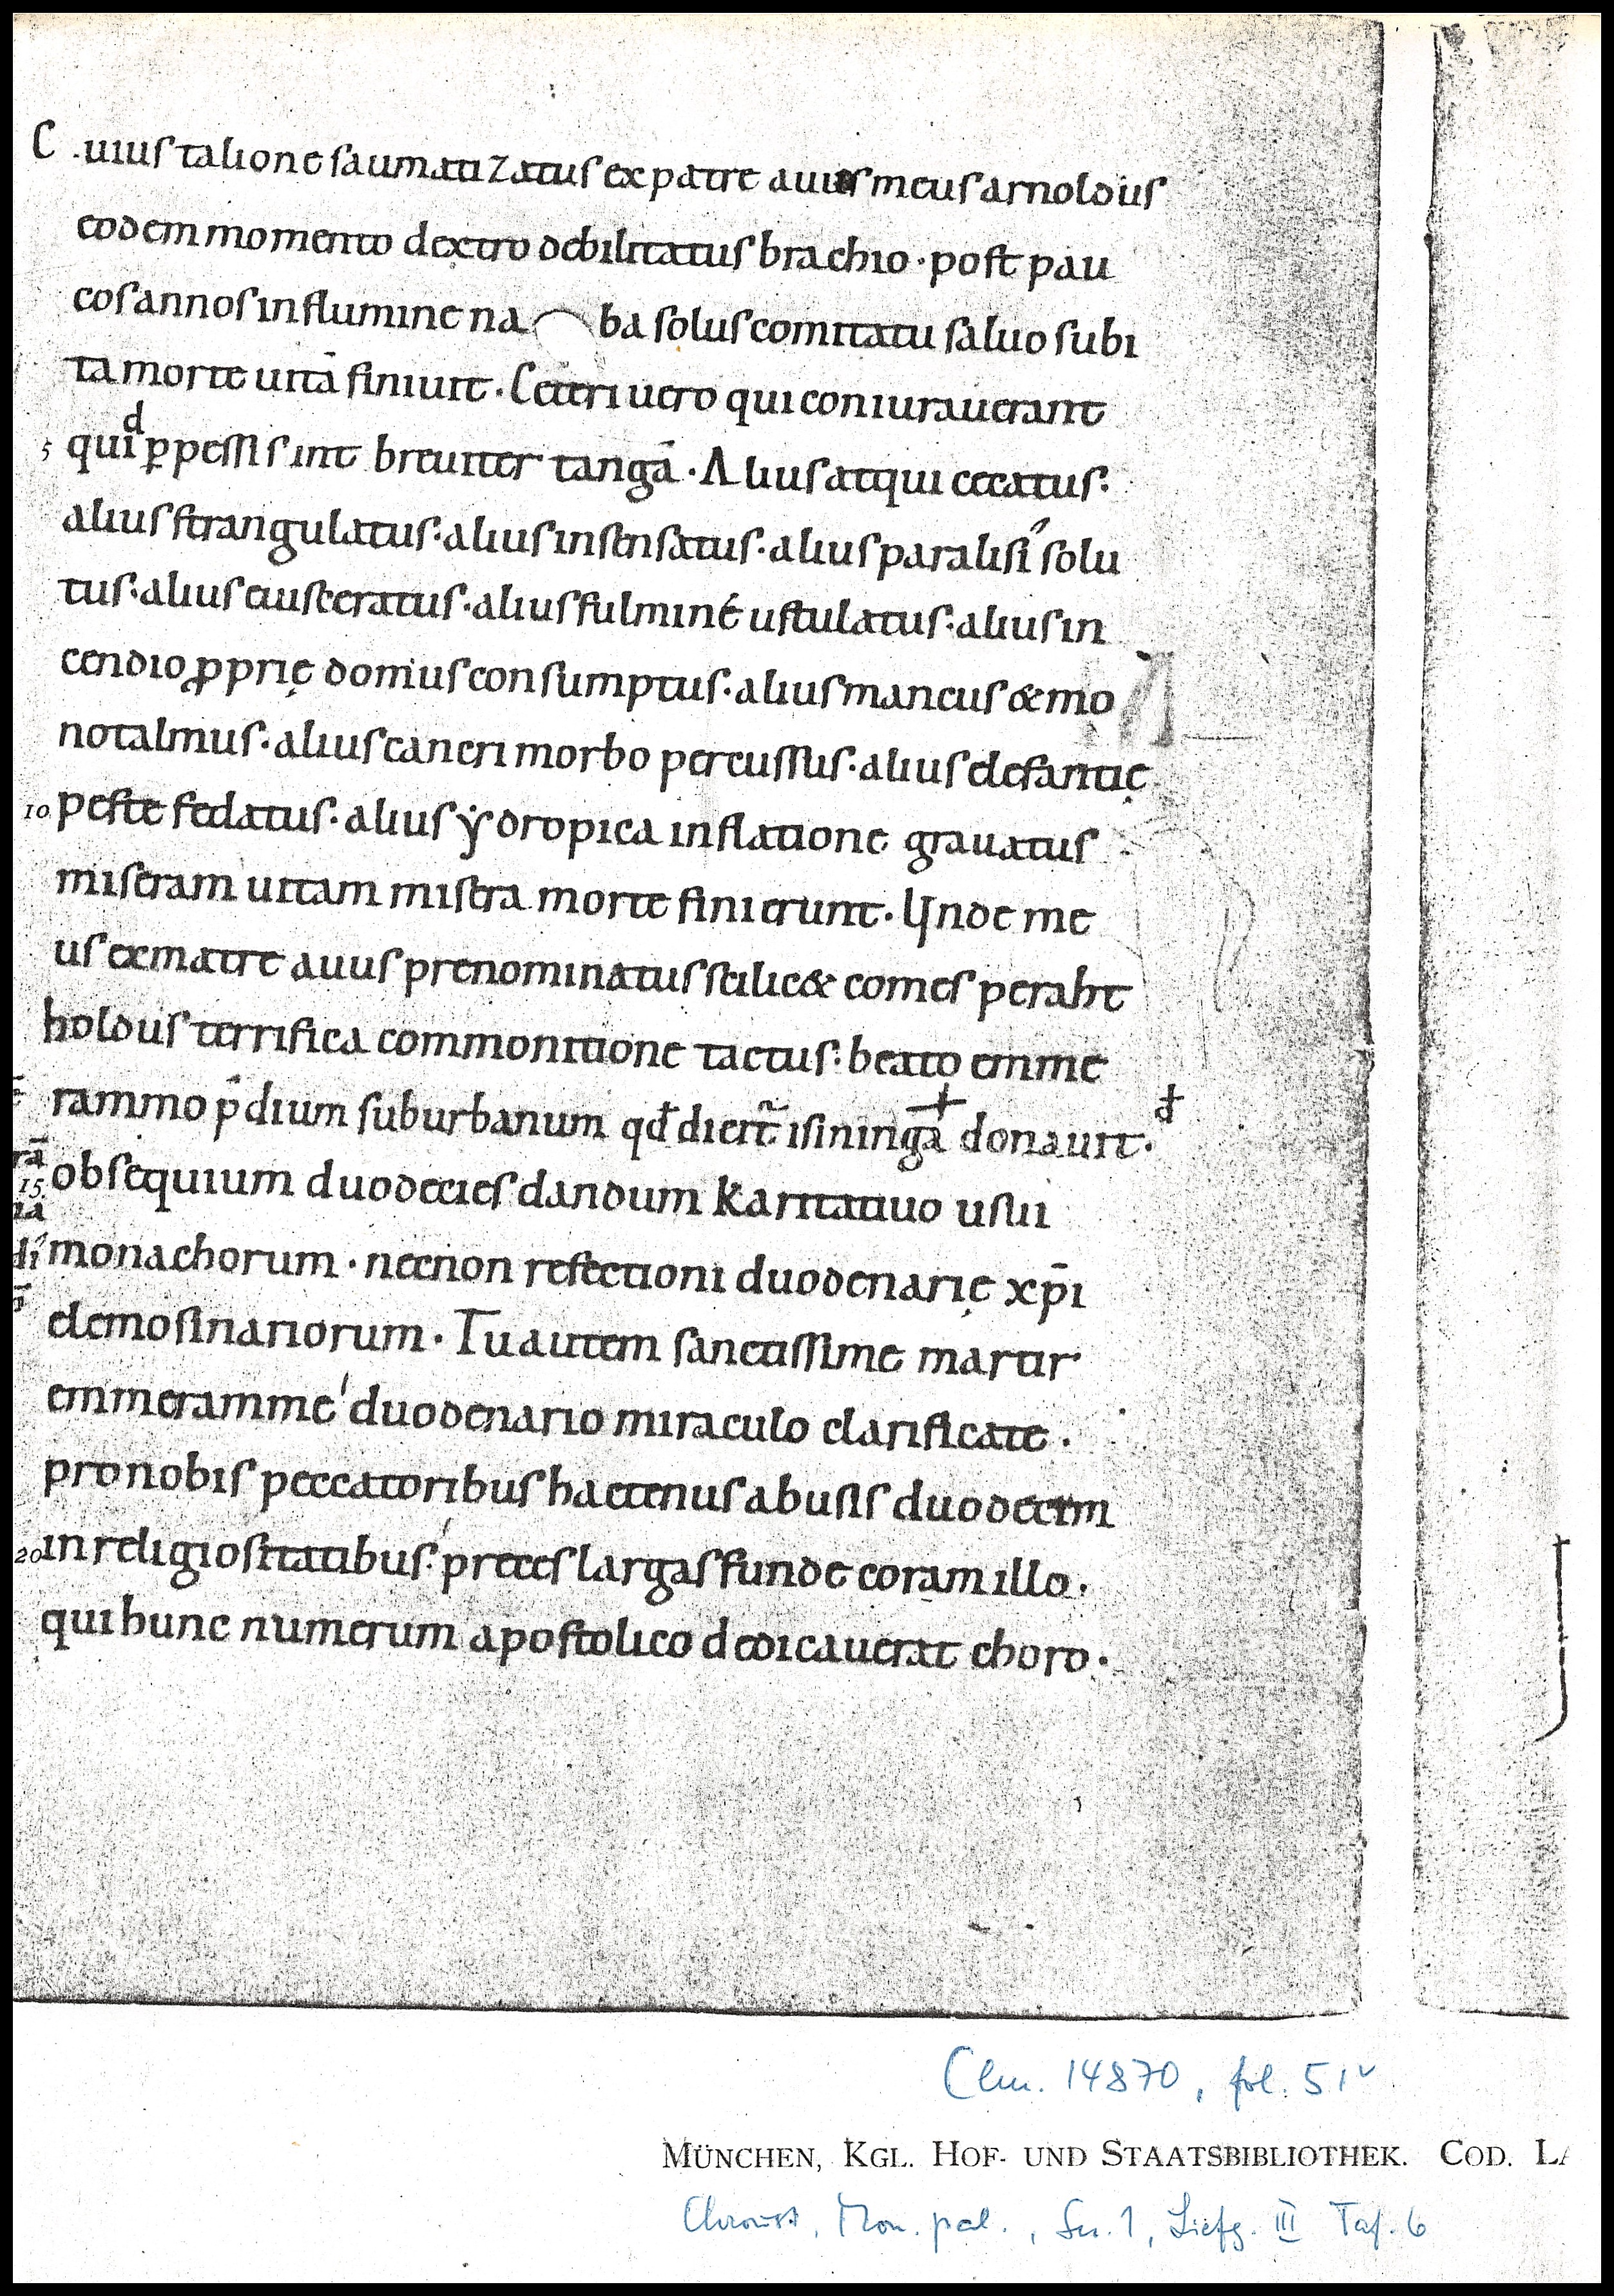 C uius talione saumatizatus ex patre auus meus arnoldus
eodem momento dextro debilitatus brachio · post pau
cos annos in flumine na ba solus comitatu saluo subi
ta morte uitā finiuit · Ceteri uero qui coniurauerant
5 quid ꝑpessi sint breuiter tangā · Alius atqui cecatus:
alius strangulatus · alius insensatus · alius paralisi solu
tus · alius euisceratus · alius fulmine ustulatus · alius in
cendio ꝓprię domus consumptus · alius mancus & mo
notalmus · alius cancri morbo percussus · alius elefantię
10 peste fedatus · alius ẏdropica inflatione grauatus
miseram uitam misera morte finierunt · Vnde me
us ex matre auus prenominatus scilic& comes peraht
holdus terrifica commonitione tactus: beato emme
rammo p̄dium suburbanum qđ dicit̃ isiningā donauit · đ
rā
15 obsequium duodecies dandum karitatiuo usui
ia
di monachorum · necnon refectioni duodenarię xp̄i
elemosinariorum · Tu autem sanctissime martir
emmeramme duodenario miraculo clarificate ·
pro nobis peccatoribus hactenus abusis duodecim
20 in religiositatibus: preces largas funde coram illo ·
qui hunc numerum apostolico dedicauerat choro ·
Clm. 14870, fol. 51v
MÜNCHEN, KGL. HOF- UND STAATSBIBLIOTHEK. COD. LA
Chroust, Mon. pal., Ser. 1, Liefg. III Taf. 6